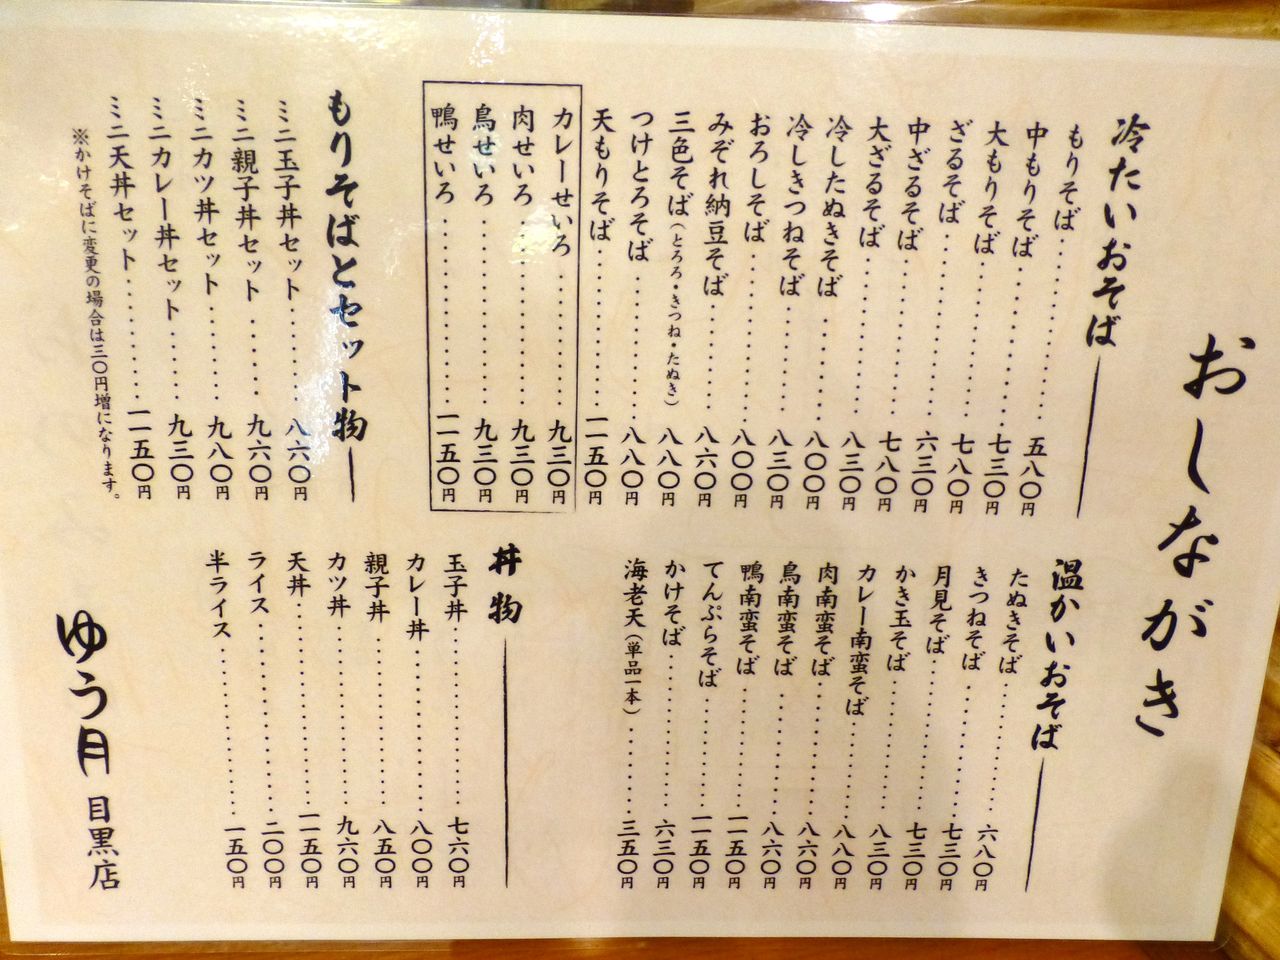 おしながき
冷たいおそば
もりそば 五八〇円
中もりそば 七三〇円
大もりそば 七八〇円
ざるそば 六三〇円
中ざるそば 七八〇円
大ざるそば 八三〇円
冷したぬきそば 八〇〇円
冷しきつねそば 八三〇円
おろしそば 八〇〇円
みぞれ納豆そば 八六〇円
三色そば(とろろ・きつね・たぬき) 八八〇円
つけとろそば 八八〇円
天もりそば 一一五〇円
カレーせいろ 九三〇円
肉せいろ 九三〇円
鳥せいろ 九三〇円
鴨せいろ 一一五〇円
もりそばとセット物
ミニ玉子丼セット 八六〇円
ミニ親子丼セット 九六〇円
ミニカツ丼セット 九八〇円
ミニカレー丼セット 九三〇円
ミニ天丼セット 一一五〇円
※かけそばに変更の場合は三〇円増になります。
温かいおそば
たぬきそば 六八〇円
きつねそば 七三〇円
月見そば 七三〇円
かき玉そば 八三〇円
カレー南蛮そば 八八〇円
肉南蛮そば 八六〇円
鳥南蛮そば 八六〇円
鴨南蛮そば 一一五〇円
てんぷらそば 一一五〇円
かけそば 六三〇円
海老天(単品一本) 三五〇円
丼物
玉子丼 七六〇円
カレー丼 八〇〇円
親子丼 八五〇円
カツ丼 九六〇円
天丼 一一五〇円
ライス 二〇〇円
半ライス 一五〇円
ゆう月 目黒店